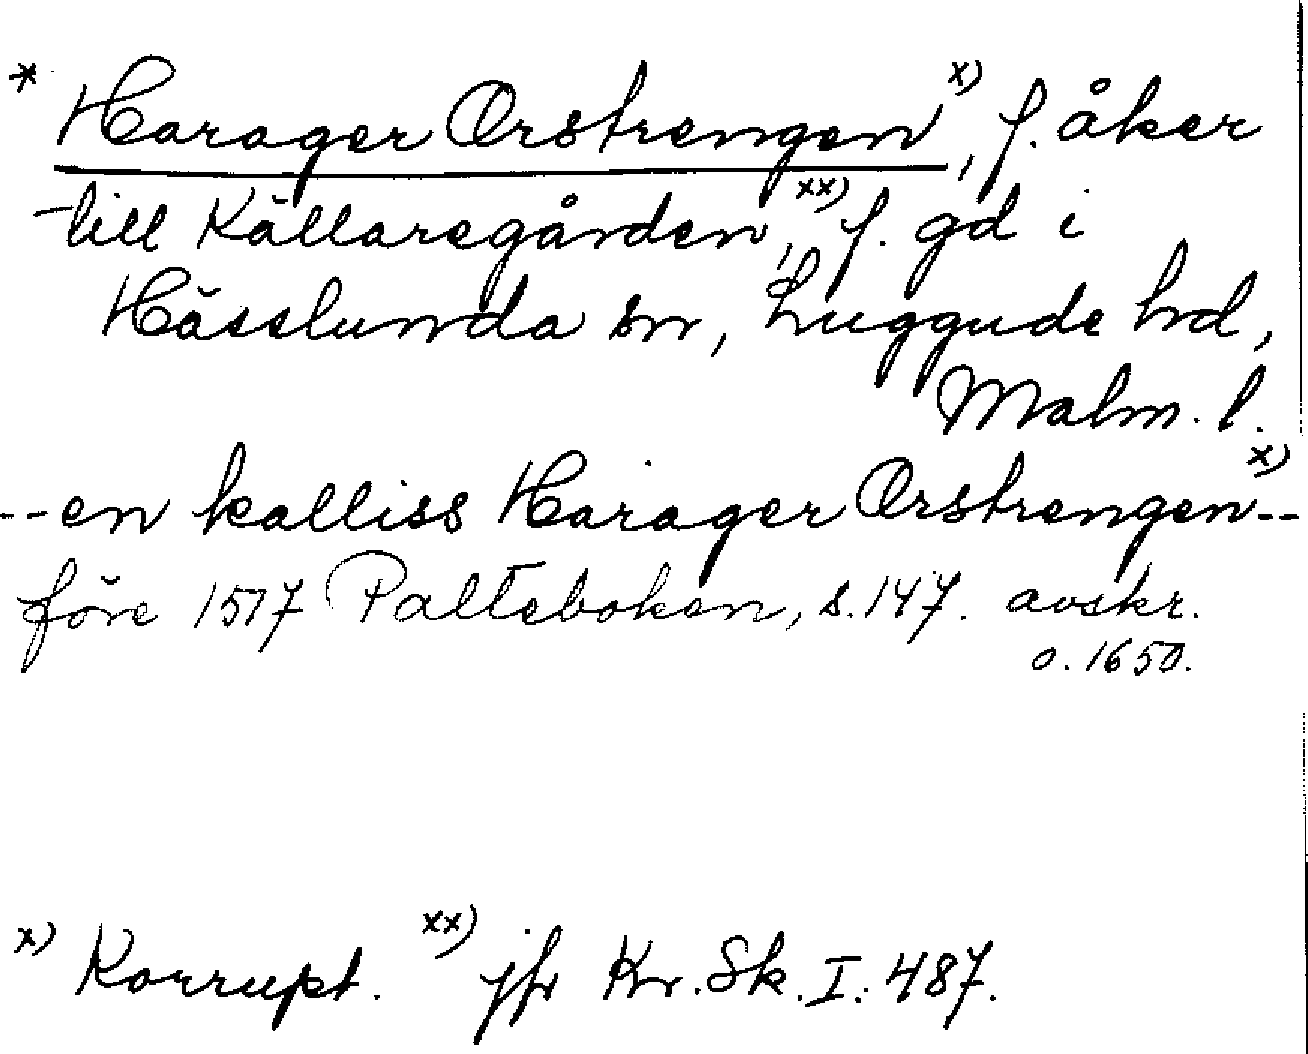 * Harager Orstrengen x), f. åker
till Källaregården, xx) f. gd i
Hässlunda sn, Luggude hd,
Malm. l.
--en kalliss Harager Orstrengen x)--
före 1517 Palteboken, s. 147. avskr.
o. 1650.
x) Korrupt. xx) jfr Kr. Sk. I: 487.